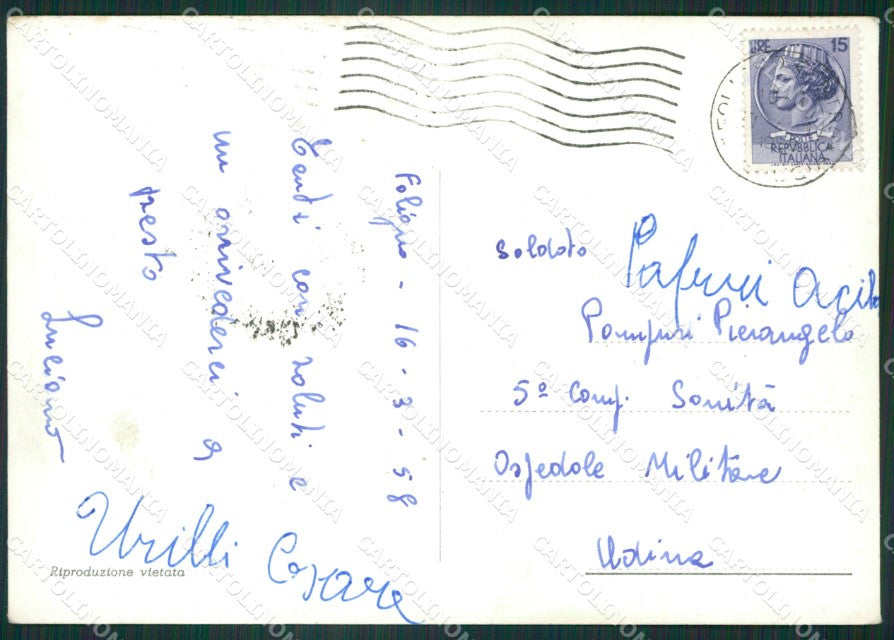 Foligno - 16 - 3 - 58
Tanti cari saluti e
un arrivederci a
presto
Luciano
Urilli Cesare
Riproduzione vietata
LIRE 15
POSTE
REPVBBLICA
ITALIANA
soldato
Pompuri Pierangelo
5ª Comp. Sanità
Ospedale Militare
Udine
CARTOLINOMANIA